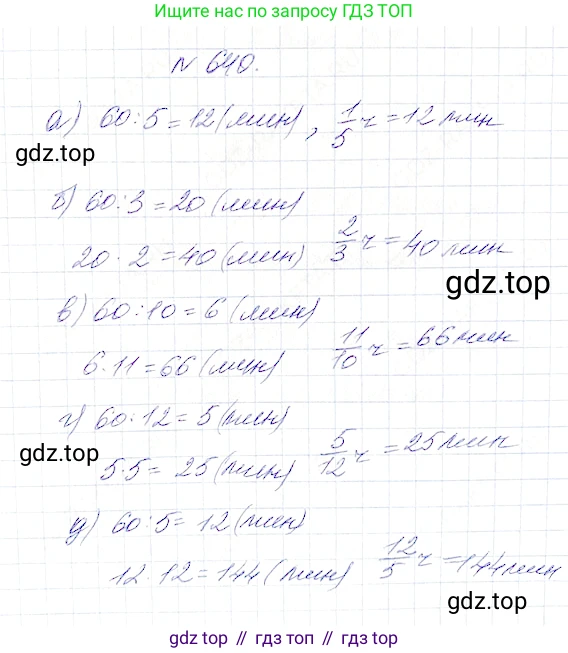 Ищите ответ по запросу ГДЗ ТОП
№ 640.
а) 60:5=12(мин), 1/5 ч=12 мин
gdz.top
б) 60:3=20 (мин)
20·2=40(мин) 2/3 ч=40 мин
gdz.top
в) 60:10=6 (мин)
6·11=66 (мин) 11/10 ч=66 мин
г) 60:12=5 (мин)
gdz.top
5·5= 25 (мин) 5/12 ч=25 мин
д) 60:5=12(мин)
12·12=144 (мин) 12/5 ч=144 мин
gdz.top
gdz top // гдз топ // gdz.top